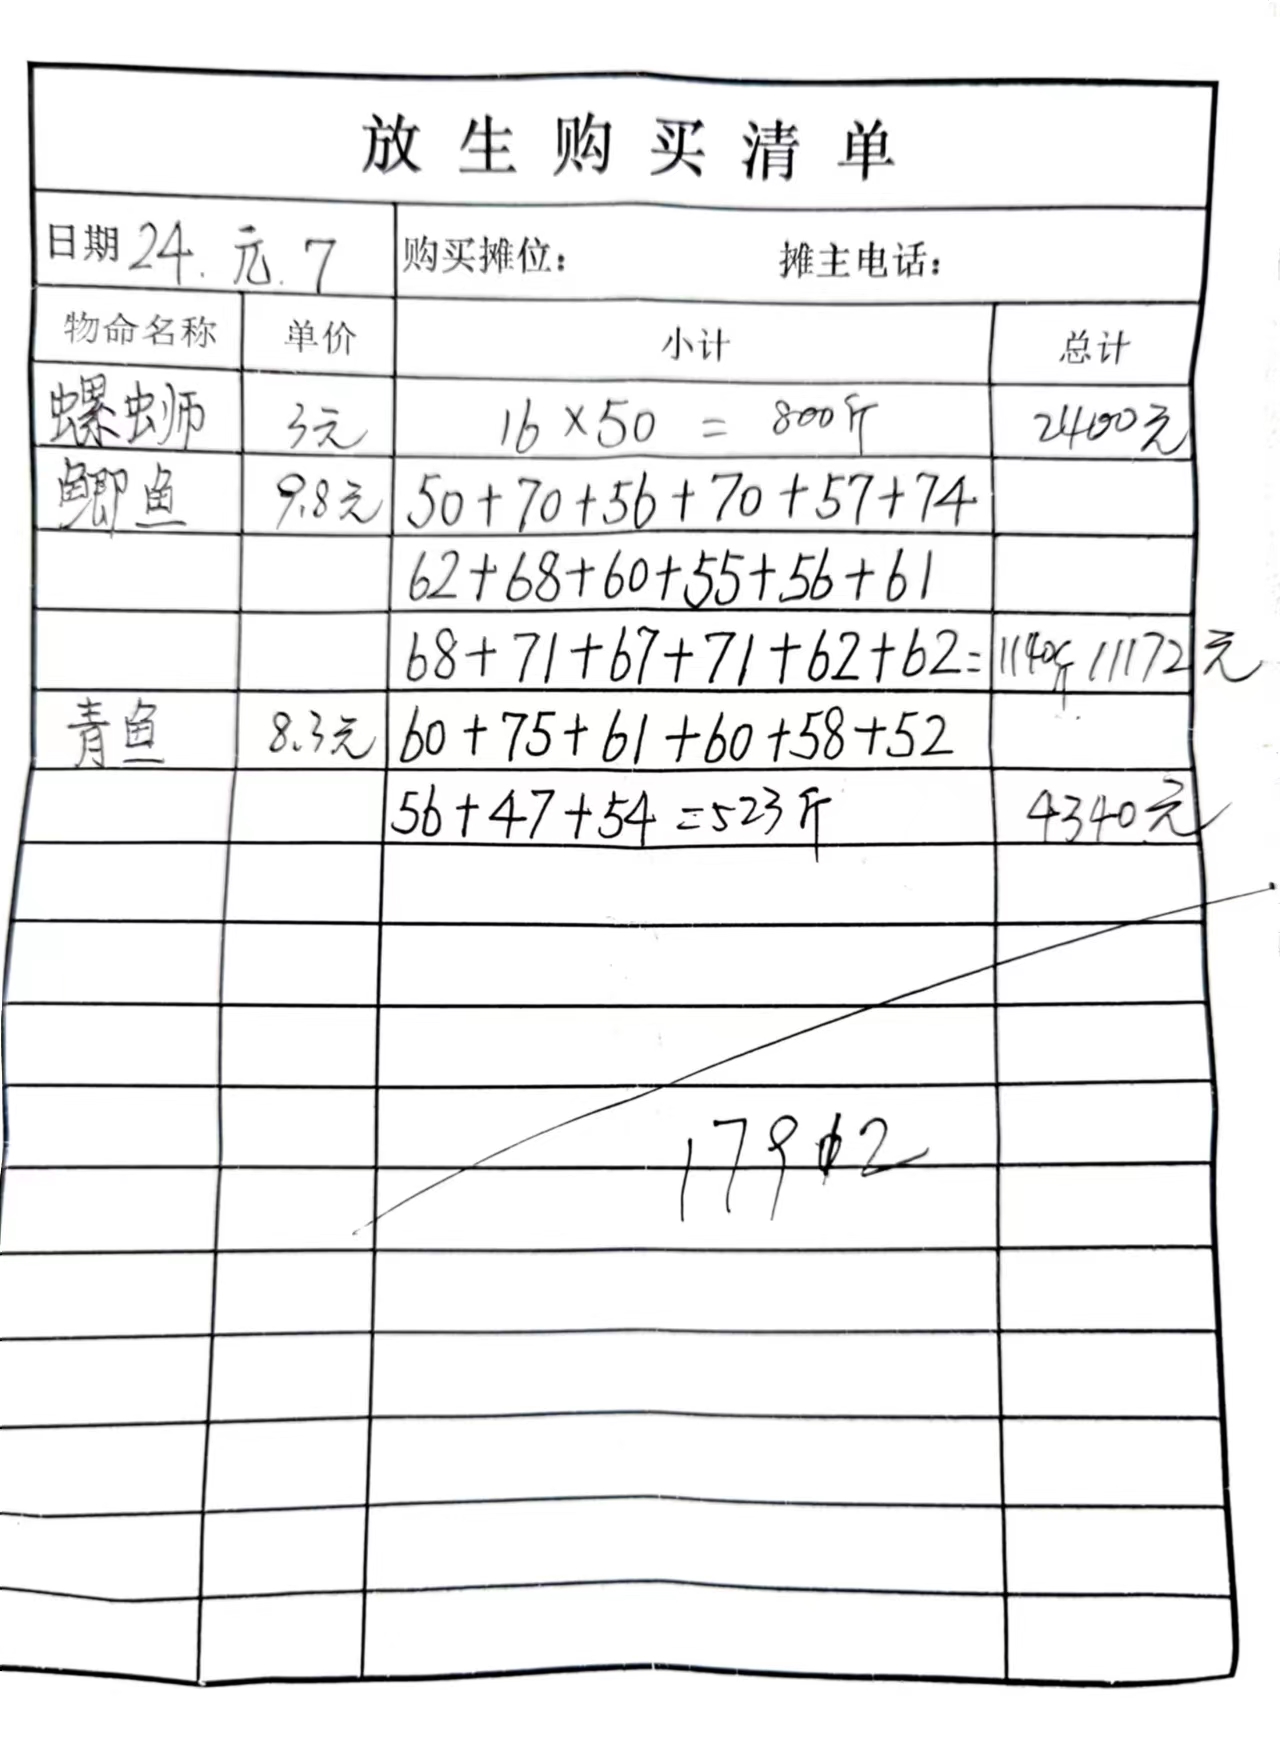 放生购买清单
日期 24.元.7 购买摊位: 摊主电话:
物命名称 单价 小计 总计
螺蛳 3元 16×50 = 800斤 2400元
鲫鱼 9.8元 50+70+56+70+57+74
62+68+60+55+56+61
68+71+67+71+62+62= 1140斤 11172元
青鱼 8.3元 60+75+61+60+58+52
56+47+54 =523斤 4340元